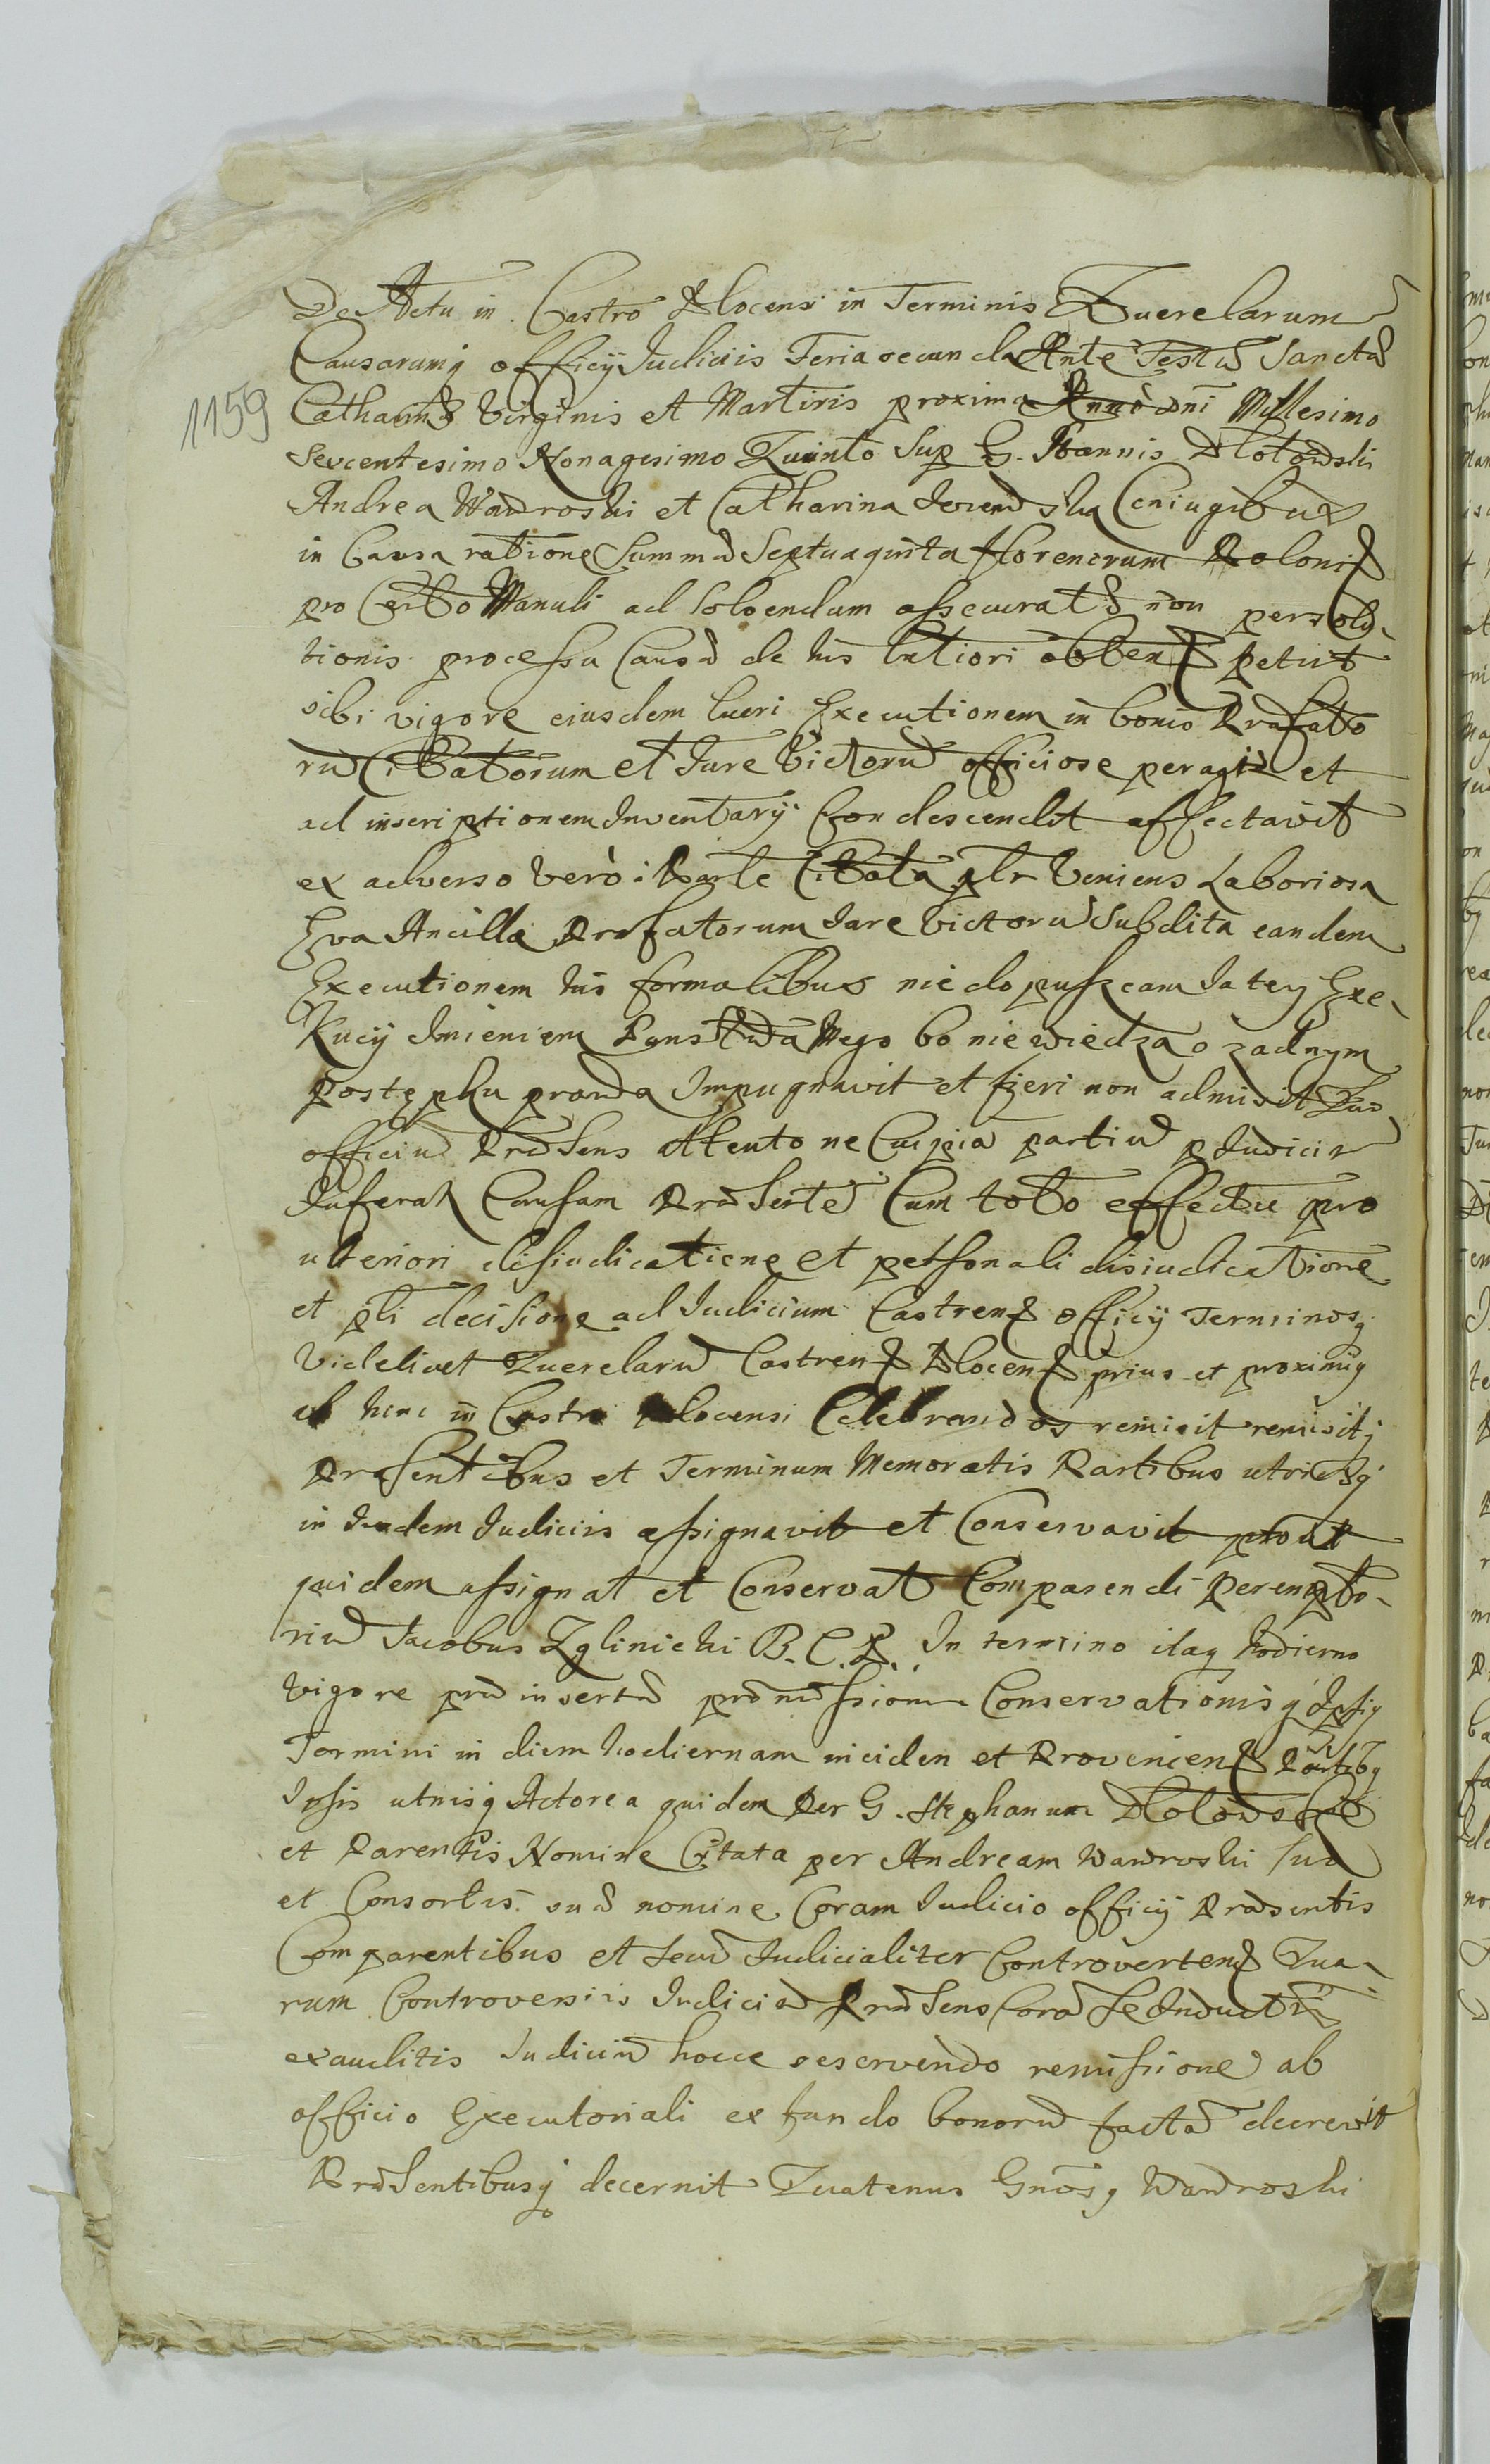 De Actu in Castro Plocensi in Terminis Querelarum
Causarumq officij Judiciis Feria secunda Ante Festu Sanctæ
1159
Catharinæ Virginis et Martiris proxima Anno dni Millesimo
Sexcentesimo Nonagesimo Quinto Sup G. Joannis Plotowski
Andrea Wądroski et Catharina Coniugibus
in Causa ratione Summæ Septuaginta florenorum Poloni
pro Manuli ad Solvendum assecuratæ non persolu
tionis processu Causæ de his latiori obten petiit
sibi vigore eiusdem lucri Executionem in bonis Præfato
rū Citatorum et Jure Victorū officiose peragi et
ad inscriptionem Inventarij Condescendit affectavit
ex adverso verò Parte Citata plr Veniens Laboriosa
Eva Ancilla Præfatorum Jure Victorū Subdita eandem
Executionem his formalibus nie dopuszcam Ja tey Exe
Kucij Imieniem Panstwa Mego bo nie wiedzą o zadnym
postępku prawa Impugnavit et fieri non admisit Quo
officiū Præsens Attento ne Cuipia partiū pIudiciū
Inferat Causam Præsente Cum toto effectu pro
ulteriori disiudicatione et personali disiudicatione
et pli decisione ad Judicium Castren officij Terminosq
Videlicet Querelarū Castren Plocen prius et proximiq
ab hinc in Castro Plocensi Celebrandos remisit remisitq
Præsentibus et Terminum Memoratis Partibus utrisq
in Iisdem Judiciis assignavit et Conservavit prout
quidem assignat et Conservat Comparendi Perempto
riū Jacobus Zglinicki B. C. P. In termino itaq hodierno
Vigore præ insertæ præmissionis Conservationisq Ipsiq
Termini in diem hodiernam inciden et Provenien Partibq
Ipsis utrisq Actorea quidem Per G. Stephanum Plotowski
et Parentis Nomine Citata per Andream Wądroski suo
et Consortis suæ nomine Coram Judicio officij Præsentis
Comparentibus et secū Judicialiter Controverten Qua
rum Controversiis Judiciū Præsens Corā se Inductis
exauditis Judiciū hocce reservendo remissione ab
officio Executoriali ex fundo bonorū factā decrevit
Præsentibusq decernit Quatenus Gnosq Wądroski